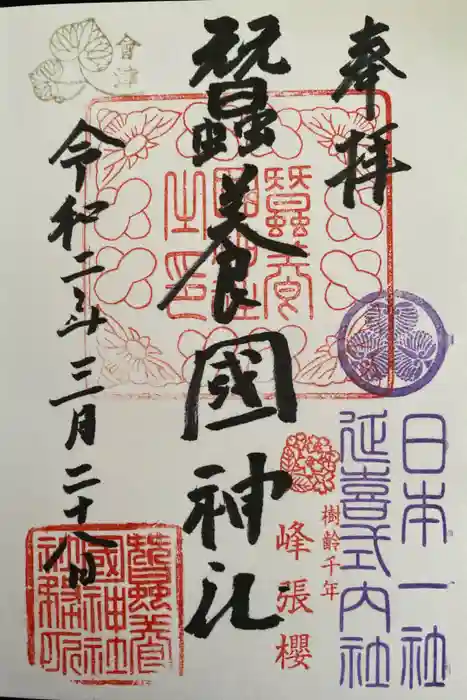 奉拝
日本一社
延喜式内社
樹齢千年
峰張櫻
蠶養國神社
蠶養國神社之印
會津
令和二年三月二十八日
蠶養國神社社務所